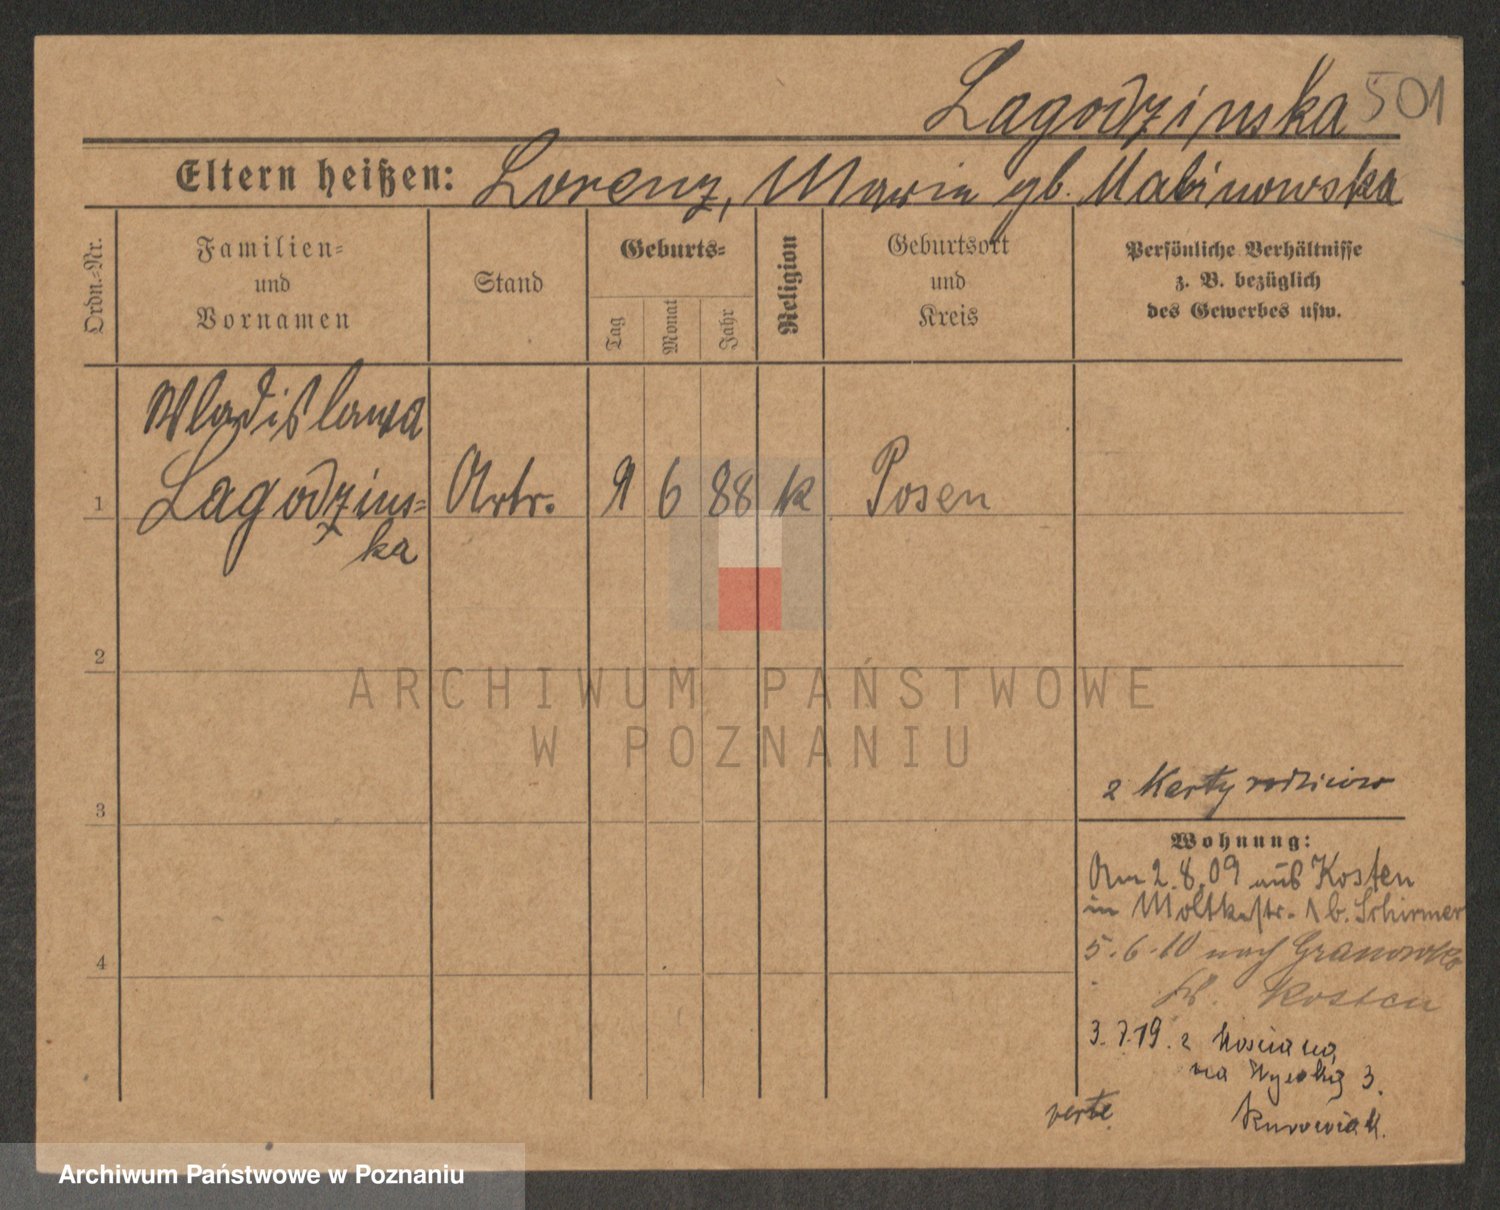 Lagodzinska 501
Eltern heißen: Lorenz, Maria gb. Malinowska
Ordn.-Nr.
Familien-
und
Vornamen
Stand
Geburts-
Tag
Monat
Jahr
Religion
Geburtsort
und
Kreis
Persönliche Verhältnisse
z. B. bezüglich
des Gewerbes usw.
Wladislawa
1 Lagodzins= Arbr. 9 6 88 k Posen
ka
2
ARCHIWUM PAŃSTWOWE
W POZNANIU
z Karty rodziców
3
Wohnung:
Am 2.8.09 aus Kosten
in Moltkestr. 1 b. Schirmer
5.6.10 nach Granowko
4
Kosten
3.7.19. z Kościana,
na Wysoką 3.
verte
Kurowiak.
Archiwum Państwowe w Poznaniu